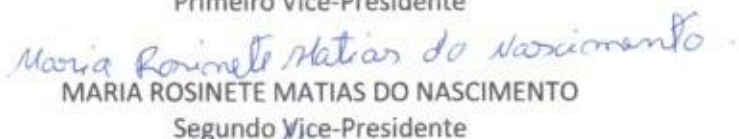 Primeiro Vice-Presidente
Maria Rosinete Matias do Nascimento.
MARIA ROSINETE MATIAS DO NASCIMENTO
Segundo Vice-Presidente